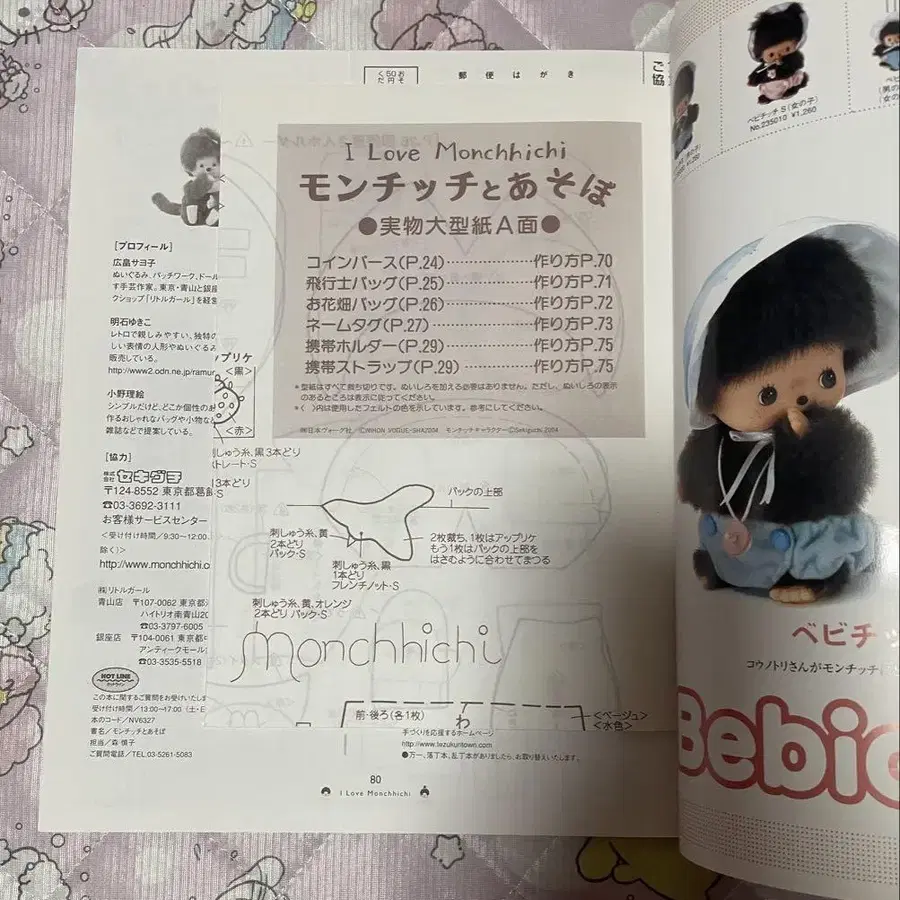 くだ 50円 おそ
郵便はがき
ご協
I Love Monchhichi
モンチッチとあそぼ
●実物大型紙A面●
コインパース(P.24)…………作り方P.70
飛行士バッグ(P.25)…………作り方P.71
お花畑バッグ(P.26)…………作り方P.72
ネームタグ(P.27)…………作り方P.73
携帯ホルダー(P.29)…………作り方P.75
携帯ストラップ(P.29)…………作り方P.75
*型紙はすべて裁ち切りです。ぬいしろを加える必要はありません。ただし、ぬいしろの表示
のあるところは表示に従ってください。
*〈 〉内は使用したフェルトの色を示しています。参考にしてください。
㈱日本ヴォーグ社／©NIHON VOGUE-SHA2004 モンチッチキャラクター©Sekiguchi 2004
[プロフィール]
広畠サヨ子
ぬいぐるみ、パッチワーク、ドール
す手芸作家。東京・青山と銀座
クショップ「リトルガール」を経営
明石ゆきこ
レトロで親しみやすい、独特の
しい表情の人形やぬいぐるみ
販売している。
http://www2.odn.ne.jp/ramur
小野理絵
シンプルだけど、どこか個性のあ
作るおしゃれなバッグや小物な
雑誌などで提案している。
[協力]
株式会社 セキグチ
〒124-8552 東京都葛飾
☎03-3692-3111
お客様サービスセンター
<受け付け時間／9:30〜12:00、
除く)>
http://www.monchhichi.c
㈱リトルガール
青山店 〒107-0062 東京都
ハイトリオ南青山20
☎03-3797-6005
銀座店 〒104-0061 東京都中
アンティークモール
☎03-3535-5518
HOT LINE
この本に関するご質問をお受けいたしま
受け付け時間／13:00〜17:00(土・日
本のコード／NV6327
書名／モンチッチとあそぼ
担当／森 慎子
ご質問電話／TEL.03-5261-5083
ップリケ
<黒>
<赤>
刺しゅう糸、黒3本どり
ストレート・S
3本どり
バックの上部
刺しゅう糸、黄
2本どり
バック・S
刺しゅう糸、黒
1本どり
フレンチノット・S
2枚裁ち、1枚はアップリケ
もう1枚はバックの上部を
はさむように合わせてまつる
刺しゅう糸、黄、オレンジ
2本どり バック・S
monchhichi
前・後ろ(各1枚)
わ
<ベージュ>
<水色>
手づくりを応援するホームページ
http://www.tezukuritown.com
●万一、落丁本、乱丁本がありましたら、お取り替えいたします。
80
I Love Monchhichi
ベビチッチS(女の子)
No.235010 ¥1,260
ベビ
(男の
(女の
ベビチッ
コウノトリさんがモンチッチに
Bebic